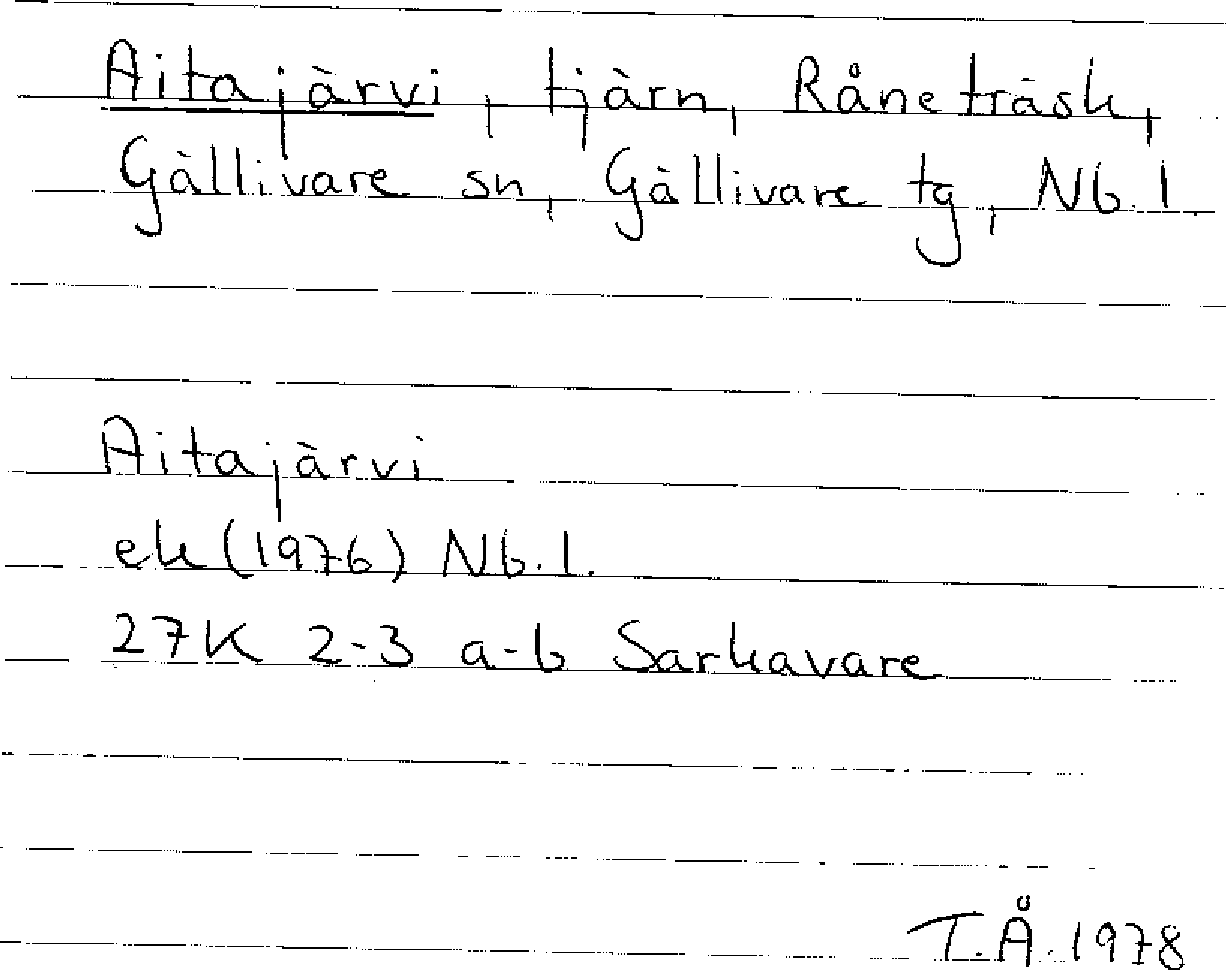 Aitajärvi, tjärn, Råneträsk,
Gällivare sn, Gällivare tg, Nb. l.
Aitajärvi
ek (1976) Nb. l.
27K 2-3 a-b Sarkavare
T.Å. 1978